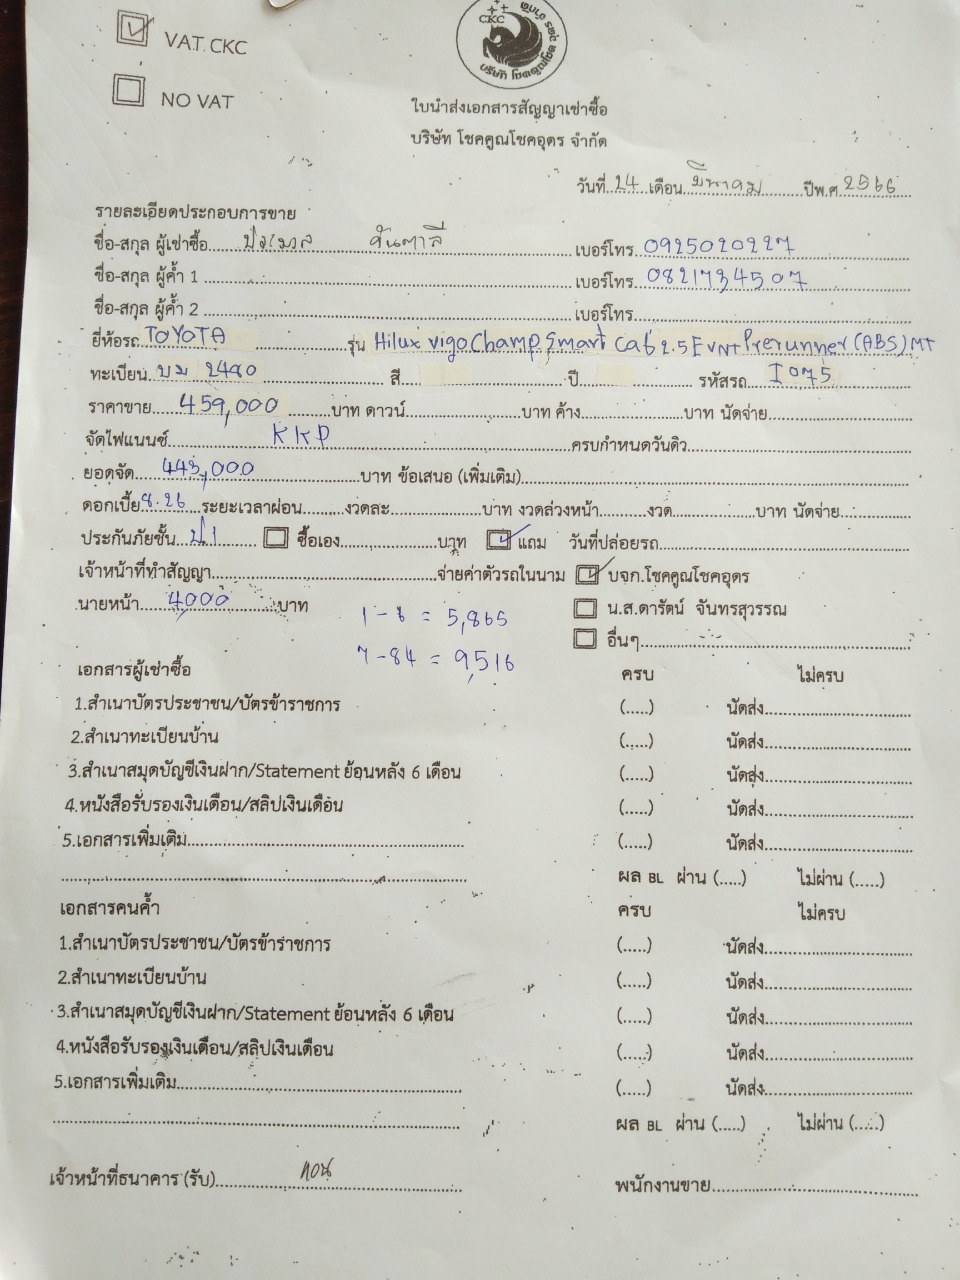 VAT CKC
CKC
NO VAT
ใบนำส่งเอกสารสัญญาเช่าซื้อ
บริษัท โชคคูณโชคอุดร จำกัด
วันที่ 24 เดือน มีนาคม ปีพ.ศ 2566
รายละเอียดประกอบการขาย
ชื่อ-สกุล ผู้เช่าซื้อ เบอร์โทร. 0925020227
ชื่อ-สกุล ผู้ค้ำ 1 เบอร์โทร. 0821734507
ชื่อ-สกุล ผู้ค้ำ 2 เบอร์โทร.
ยี่ห้อรถ TOYOTA รุ่น Hilux vigo Champ Smart Cab 2.5 E VNT Prerunner (ABS) MT
ทะเบียน บม 2480 สี ปี รหัสรถ I075
ราคาขาย 459,000 บาท ดาวน์ บาท ค้าง บาท นัดจ่าย
จัดไฟแนนซ์ KKP ครบกำหนดวันดิว
ยอดจัด 443,000 บาท ข้อเสนอ (เพิ่มเติม)
ดอกเบี้ย 8.26 ระยะเวลาผ่อน งวดละ บาท งวดล่วงหน้า งวด บาท นัดจ่าย
ประกันภัยชั้น ป1 ซื้อเอง บาท แถม วันที่ปล่อยรถ
เจ้าหน้าที่ทำสัญญา จ่ายค่าตัวรถในนาม บจก.โชคคูณโชคอุดร
นายหน้า 4,000 บาท น.ส.ดารัตน์ จันทรสุวรรณ
1 - 6 = 5,865
อื่นๆ
7 - 84 = 9,516
เอกสารผู้เช่าซื้อ ครบ ไม่ครบ
1.สำเนาบัตรประชาชน/บัตรข้าราชการ (.....) นัดส่ง
2.สำเนาทะเบียนบ้าน (.....) นัดส่ง
3.สำเนาสมุดบัญชีเงินฝาก/Statement ย้อนหลัง 6 เดือน (.....) นัดส่ง
4.หนังสือรับรองเงินเดือน/สลิปเงินเดือน (.....) นัดส่ง
5.เอกสารเพิ่มเติม (.....) นัดส่ง
ผล BL ผ่าน (.....) ไม่ผ่าน (.....)
เอกสารคนค้ำ ครบ ไม่ครบ
1.สำเนาบัตรประชาชน/บัตรข้าราชการ (.....) นัดส่ง
2.สำเนาทะเบียนบ้าน (.....) นัดส่ง
3.สำเนาสมุดบัญชีเงินฝาก/Statement ย้อนหลัง 6 เดือน (.....) นัดส่ง
4.หนังสือรับรองเงินเดือน/สลิปเงินเดือน (.....) นัดส่ง
5.เอกสารเพิ่มเติม (.....) นัดส่ง
ผล BL ผ่าน (.....) ไม่ผ่าน (.....)
เจ้าหน้าที่ธนาคาร (รับ) พนักงานขาย